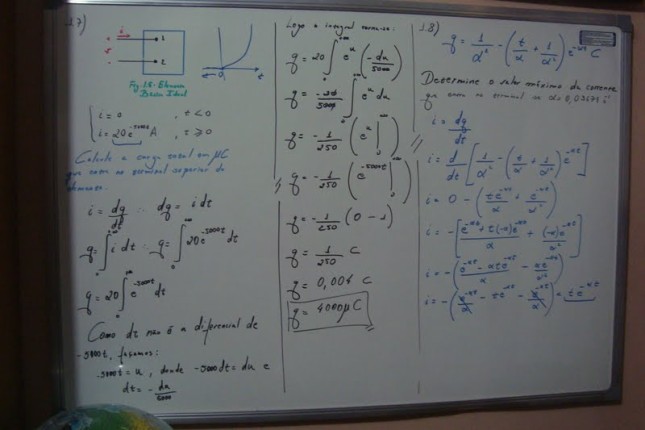 1.7)
i
1
2
t
Fig. 1.8 - Elemento
Básico Ideal
i = 0 , t < 0
i = 20e^-5000t A , t ≥ 0
Calcule a carga total em μC
que entra no terminal superior do
elemento.
i = dq/dt ∴ dq = i dt
q = ∫₀^+∞ i dt ∴ q = ∫₀^+∞ 20e^-5000t dt
q = 20 ∫₀^+∞ e^-5000t dt
Como dt não é a diferencial de
-5000t, façamos:
-5000t = u , donde -5000dt = du e
dt = - du/5000
Logo a integral
q = 20 ∫₀^+∞ e^u (-du/5000)
q = -20/5000 ∫₀^+∞ e^u du
q = -1/250 (e^u |₀^+∞)
q = -1/250 (e^-5000t |₀^+∞)
q = -1/250 (0 - 1)
q = 1/250 C
q = 0,004 C
q = 4000 μC
1.8)
q = 1/α² - (t/α + 1/α²) e^-αt C
Determine o valor máximo da corrente
que entra no terminal se α = 0,03679 s⁻¹
i = dq/dt
i = d/dt [1/α² - (t/α + 1/α²) e^-αt]
i = 0 - (te^-αt/α + e^-αt/α²)'
i = -[e^-αt + t(-α)e^-αt/α + (-α)e^-αt/α²]
i = -(e^-αt - αte^-αt/α - αe^-αt/α²)
i = -(e^-αt/α - te^-αt - e^-αt/α) = te^-αt